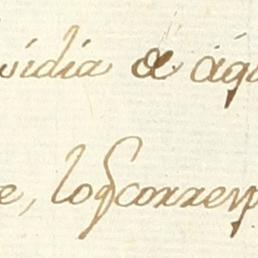 vidia de aqu
e, los corresp